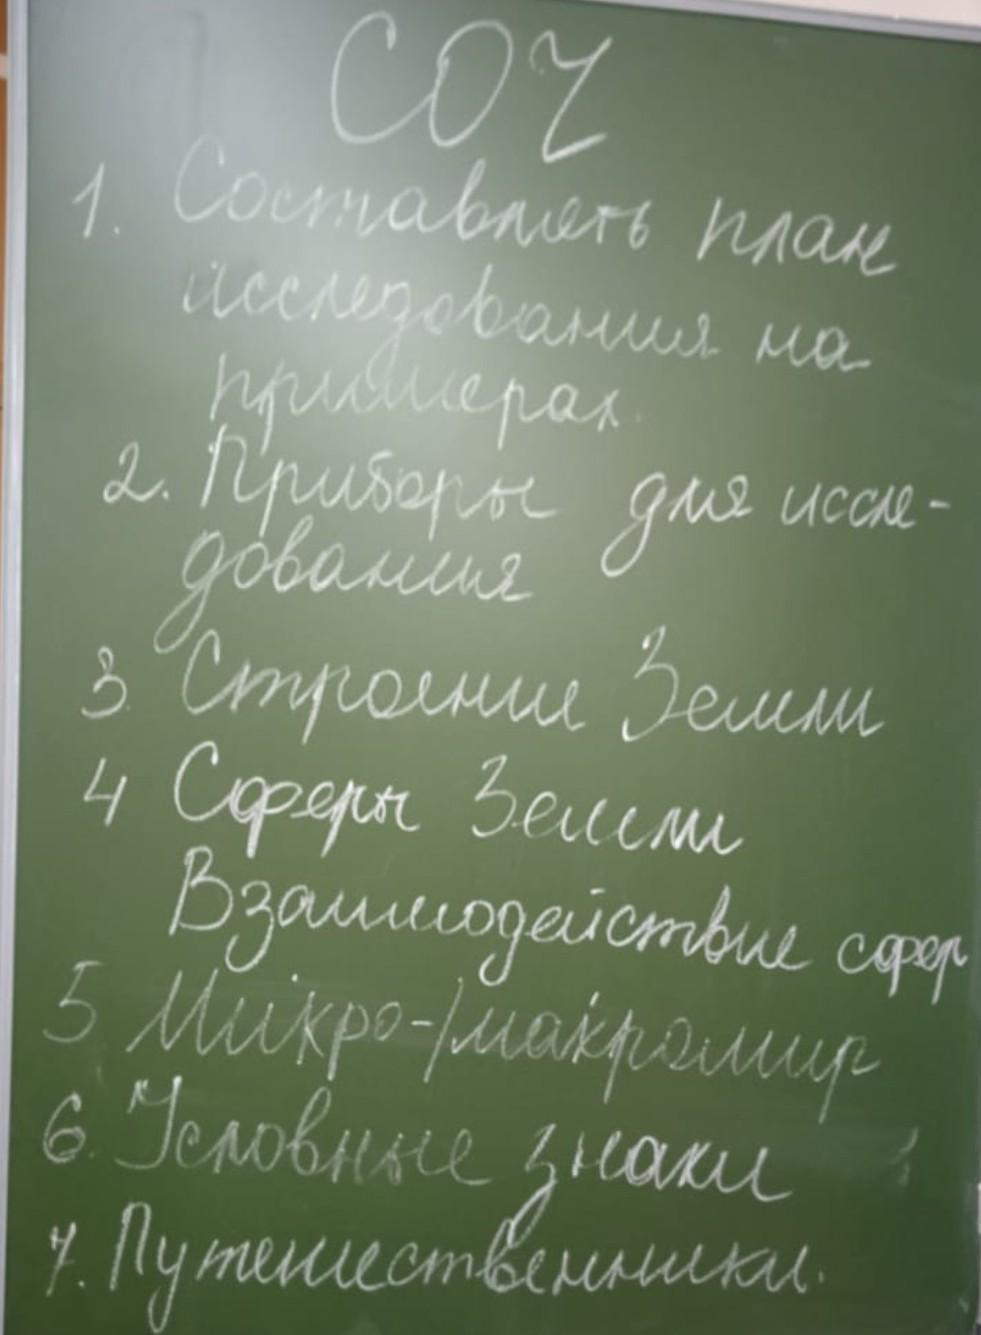 СОЧ
1. Составлять план
исследования на
примерах.
2. Приборы для иссле-
дования
3. Строение Земли
4 Сферы Земли
Взаимодействие сфер
5 Микро-/макромир
6. Условные знаки
7. Путешественники.